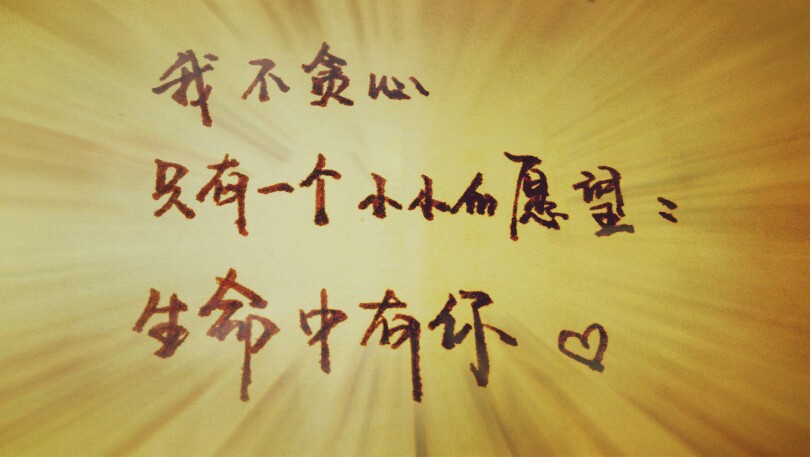 我不贪心
只有一个小小的愿望：
生命中有你♡